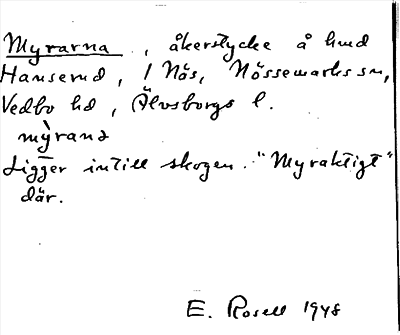 Myrarna, åkerstycke å hmd
Hanserud, 1 Nös, Nössemarks sn,
Vedbo hd, Älvsborgs l.
mỳrana
Ligger intill skogen. "Myraktigt"
där.
E. Rosell 1948